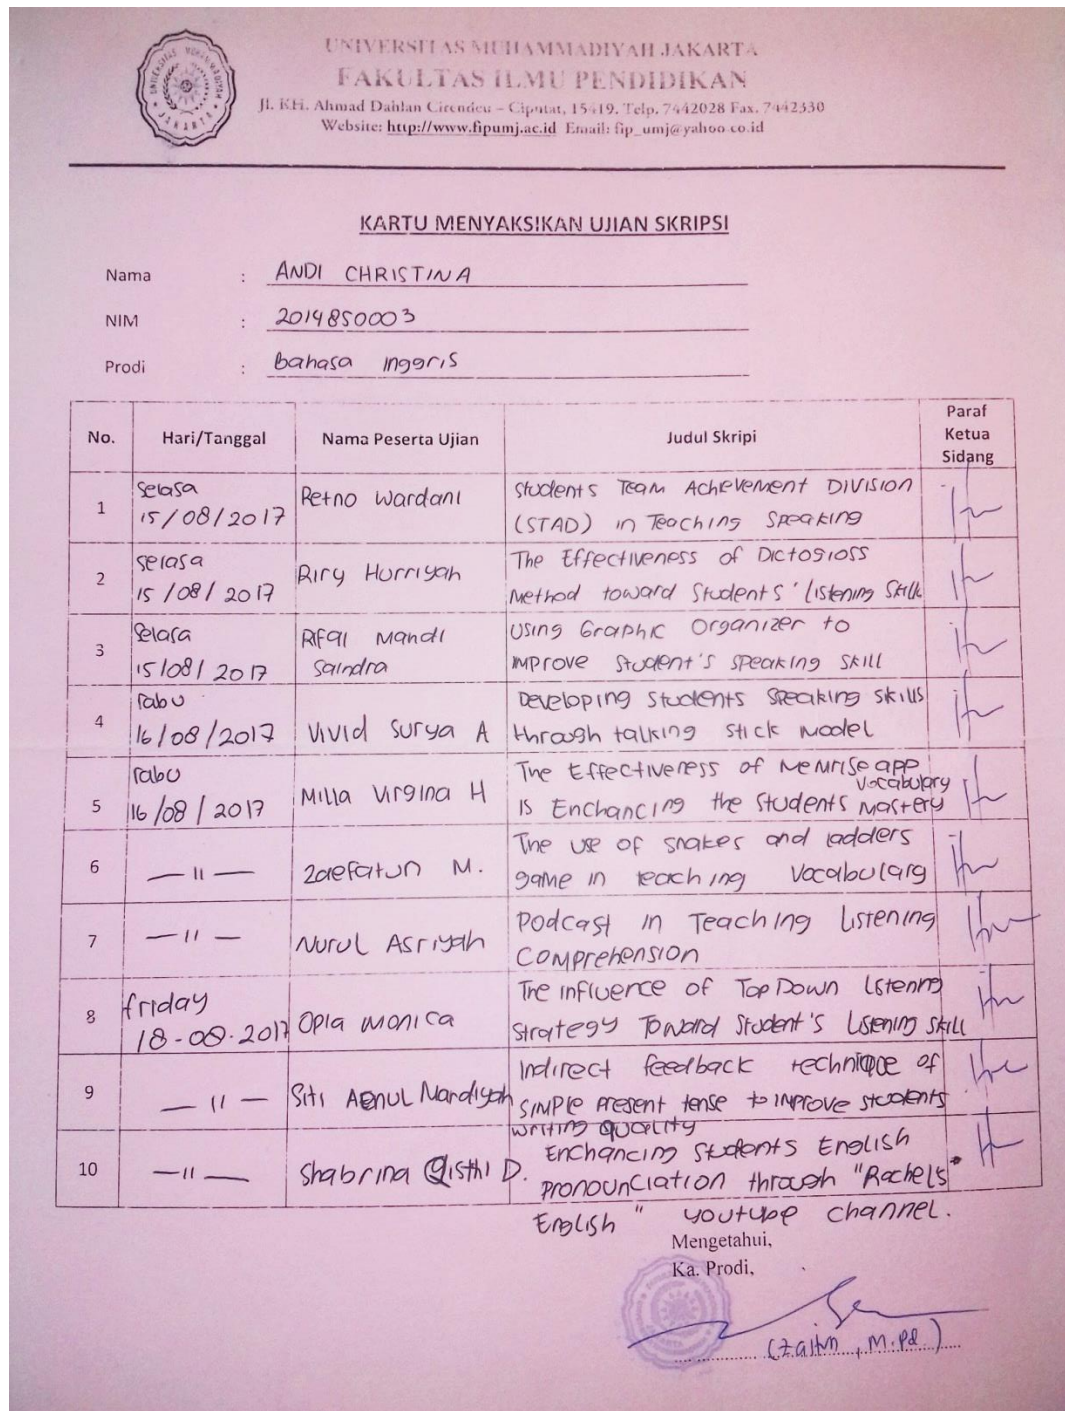 UNIVERSITAS MUHAMMADIYAH JAKARTA
FAKULTAS ILMU PENDIDIKAN
Jl. KH. Ahmad Dahlan Cirendeu – Ciputat, 15419. Telp. 7442028 Fax. 7442330
Website: http://www.fipumj.ac.id Email: fip_umj@yahoo.co.id
UNIVERSITAS MUHAMMADIYAH
JAKARTA
KARTU MENYAKSIKAN UJIAN SKRIPSI
Nama : ANDI CHRISTINA
NIM : 2014850003
Prodi : Bahasa Inggris
No. Hari/Tanggal Nama Peserta Ujian Judul Skripi Paraf Ketua Sidang
1 Selasa 15/08/2017 Retno Wardani Students Team Achievement Division
(STAD) in Teaching Speaking
2 Selasa 15/08/2017 Riry Hurriyah The Effectiveness of Dictogloss
Method toward Students' Listening Skill
3 Selasa 15/08/2017 Rifqi Mandi Saindra Using Graphic Organizer to
improve Student's speaking skill
4 rabu 16/08/2017 Vivid Surya A Developing Students Speaking skills
through talking stick model
5 rabu 16/08/2017 Milla Virgina H The Effectiveness of Memrise app
is Enchancing the Students Vocabulary Mastery
6 — 11 — Zaefatun M. The use of snakes and ladders
game in teaching Vocabulary
7 — 11 — Nurul Asriyah Podcast in Teaching Listening
Comprehension
8 friday 18-08-2017 Opia Monica The influence of Top Down Listening
Strategy Toward Student's Listening skill
9 — 11 — Siti Aenul Mardiyah Indirect feedback technique of
simple present tense to improve students
writing quality
10 — 11 — Shabrina Qisthi D. Enchancing Students English
Pronounciation through "Rachel's
English" youtube channel.
Mengetahui,
Ka. Prodi,
(Zaitun, M.Pd)